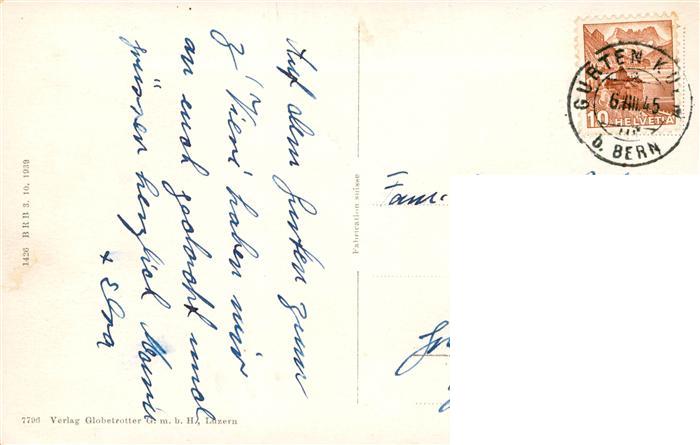 Auf dem Gurten zum
Z'Vieri haben wir
an euch gedacht und
grüssen herzlich
+ Elsa
1426 B R B 3. 10. 1939
Fabrication suisse
7796 Verlag Globetrotter G. m. b. H., Luzern
GURTEN KULM
6.VIII.45
b. BERN
10 HELVETIA
Fam.